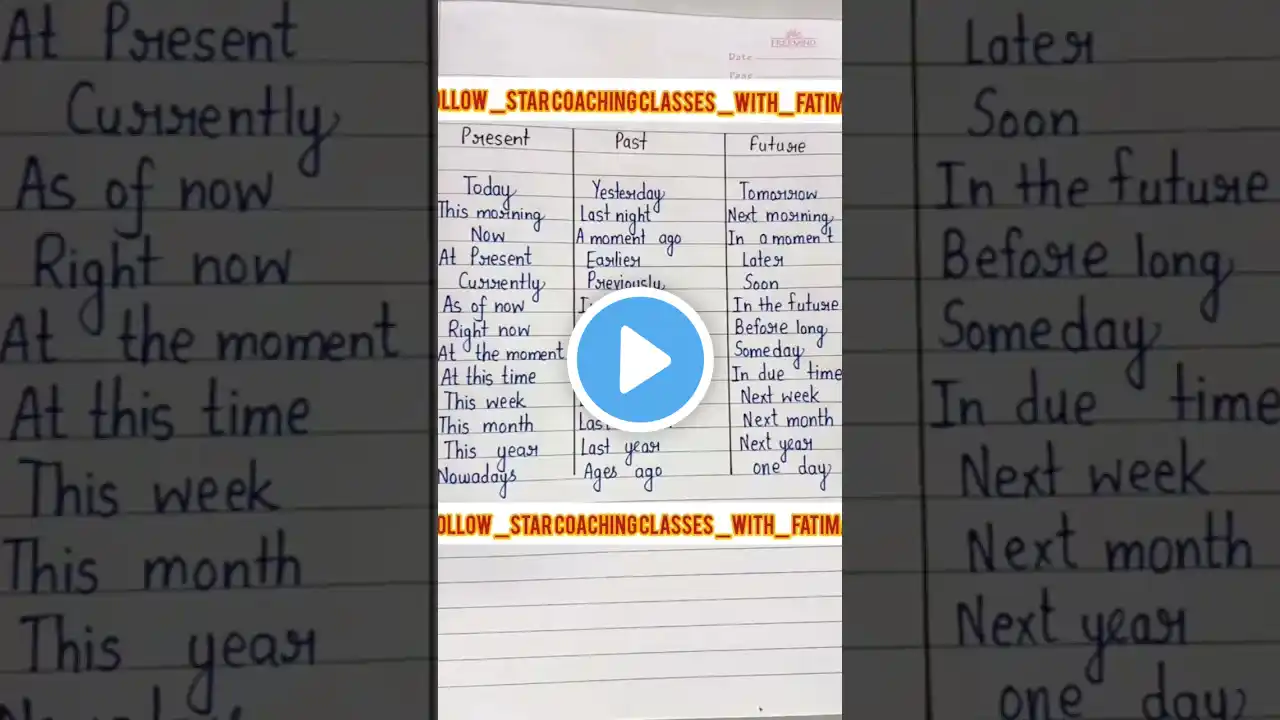 At Present
Currently
As of now
Right now
At the moment
At this time
This week
This month
This year
FREEMIND
Date
Page
OLLOW_STAR COACHING CLASSES_WITH_FATIM
Present Past Future
Today Yesterday Tomorrow
This morning Last night Next morning
Now A moment ago In a moment
At Present Earlier Later
Currently Previously Soon
As of now In the future
Right now Before long
At the moment Someday
At this time In due time
This week Next week
This month Next month
This year Last year Next year
Nowadays Ages ago one day
OLLOW_STAR COACHING CLASSES_WITH_FATIMA
Later
Soon
In the future
Before long
Someday
In due time
Next week
Next month
Next year
one day